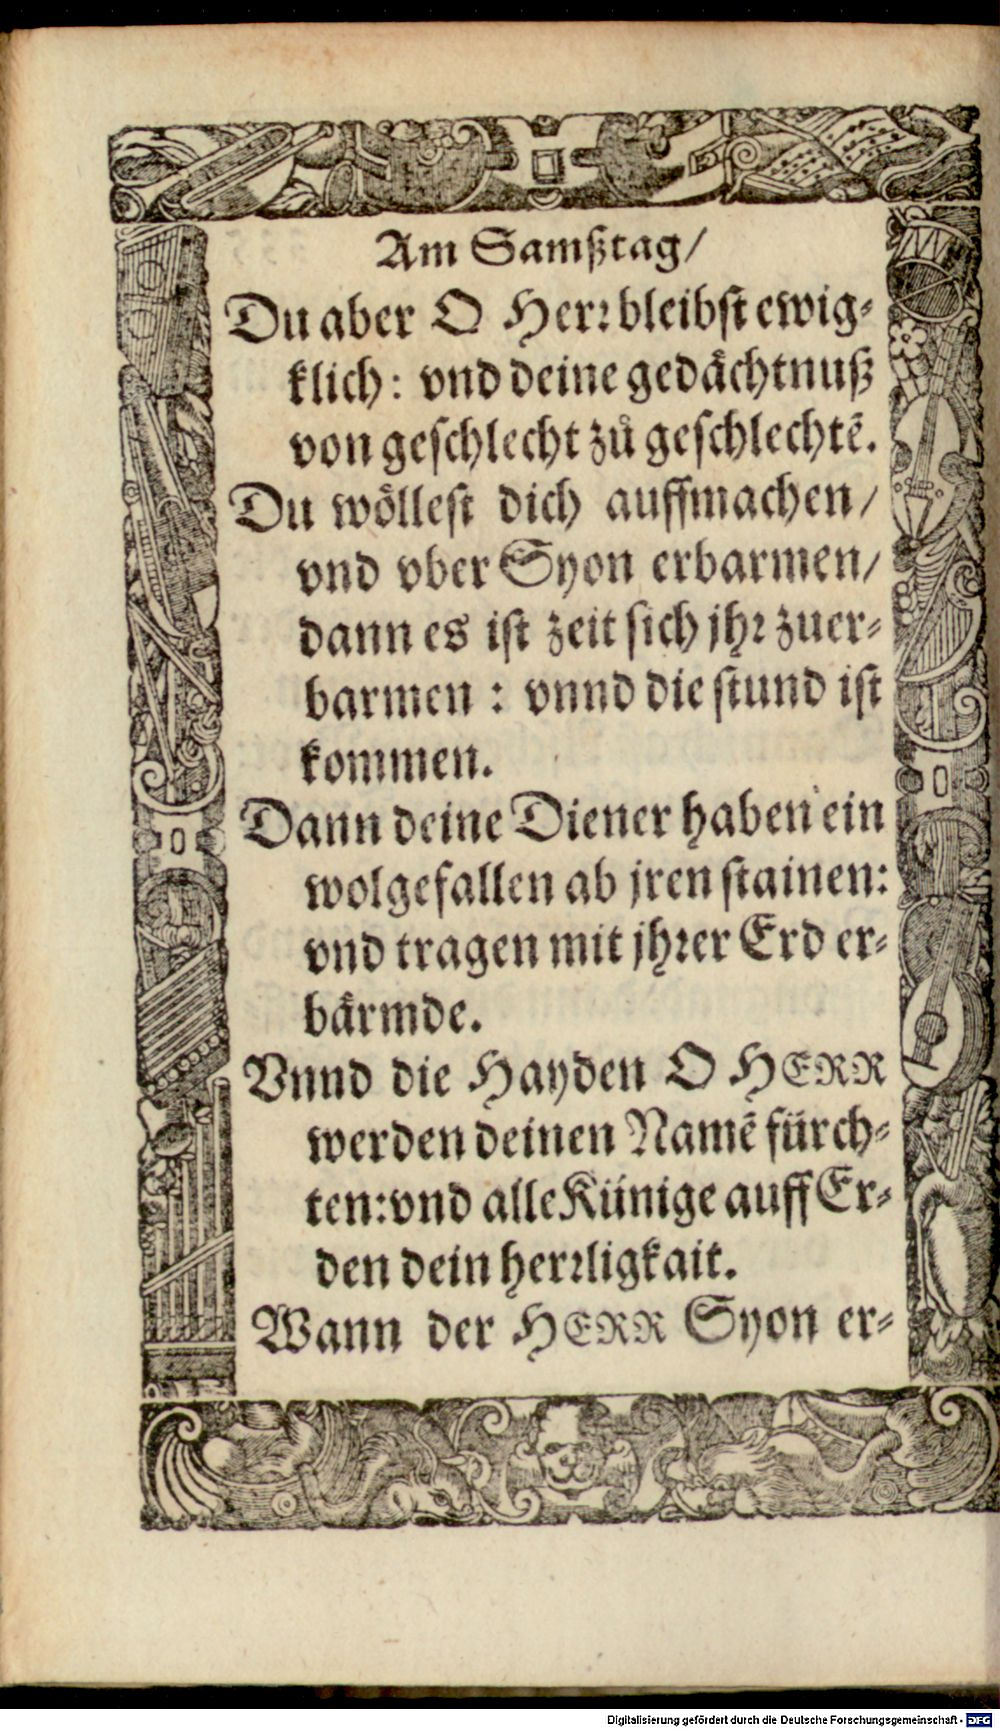 Am Samßtag/
Du aber O Herꝛ bleibst ewig⸗
klich: vnd deine gedaͤchtnuß
von geschlecht zuͦ geschlechtē.
Du woͤllest dich auffmachen/
vnd vber Syon erbarmen/
dann es ist zeit sich jhꝛ zuer⸗
barmen : vnnd die stund ist
kommen.
Dann deine Diener haben ein
wolgefallen ab jren stainen:
vnd tragen mit jhꝛer Erd er⸗
baͤrmde.
Vnnd die Hayden O HERR
werden deinen Namē fürch⸗
ten: vnd alle Künige auff Er⸗
den dein herꝛligkait.
Wann der HERR Syon er⸗
Digitalisierung gefördert durch die Deutsche Forschungsgemeinschaft - DFG